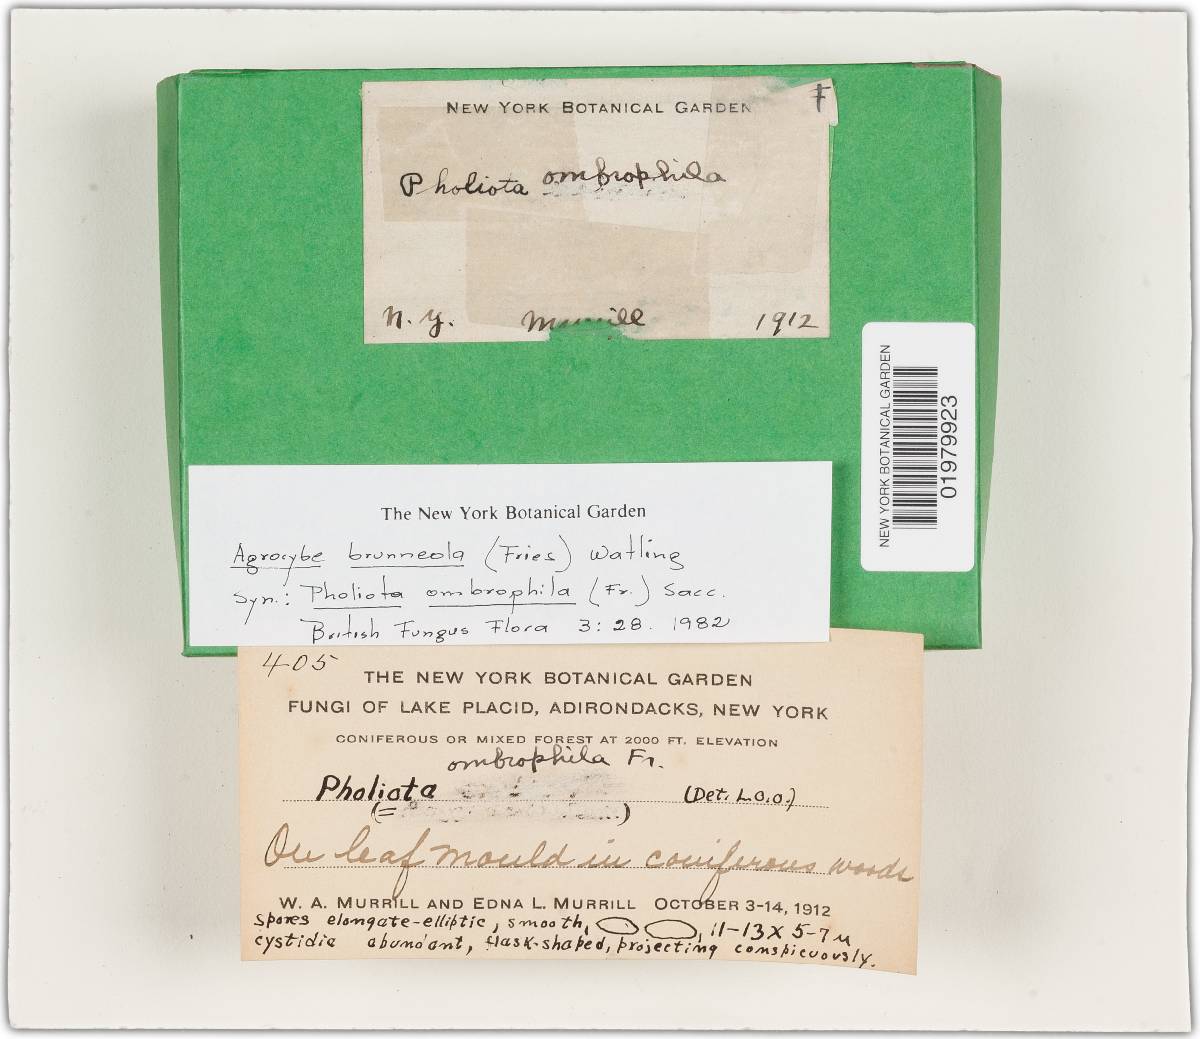 NEW YORK BOTANICAL GARDEN
F
Pholiota ombrophila
N. Y. Murrill 1912
NEW YORK BOTANICAL GARDEN
01979923
The New York Botanical Garden
Agrocybe brunneola (Fries) Watling
Syn.: Pholiota ombrophila (Fr.) Sacc.
British Fungus Flora 3: 28. 1982
405
THE NEW YORK BOTANICAL GARDEN
FUNGI OF LAKE PLACID, ADIRONDACKS, NEW YORK
CONIFEROUS OR MIXED FOREST AT 2000 FT. ELEVATION
ombrophila Fr.
Pholiota (Det. L.O.O.)
(= )
On leaf mould in coniferous woods
W. A. MURRILL AND EDNA L. MURRILL OCTOBER 3-14, 1912
spores elongate-elliptic, smooth, , 11-13 x 5-7 µ
cystidia abundant, flask-shaped, projecting conspicuously.